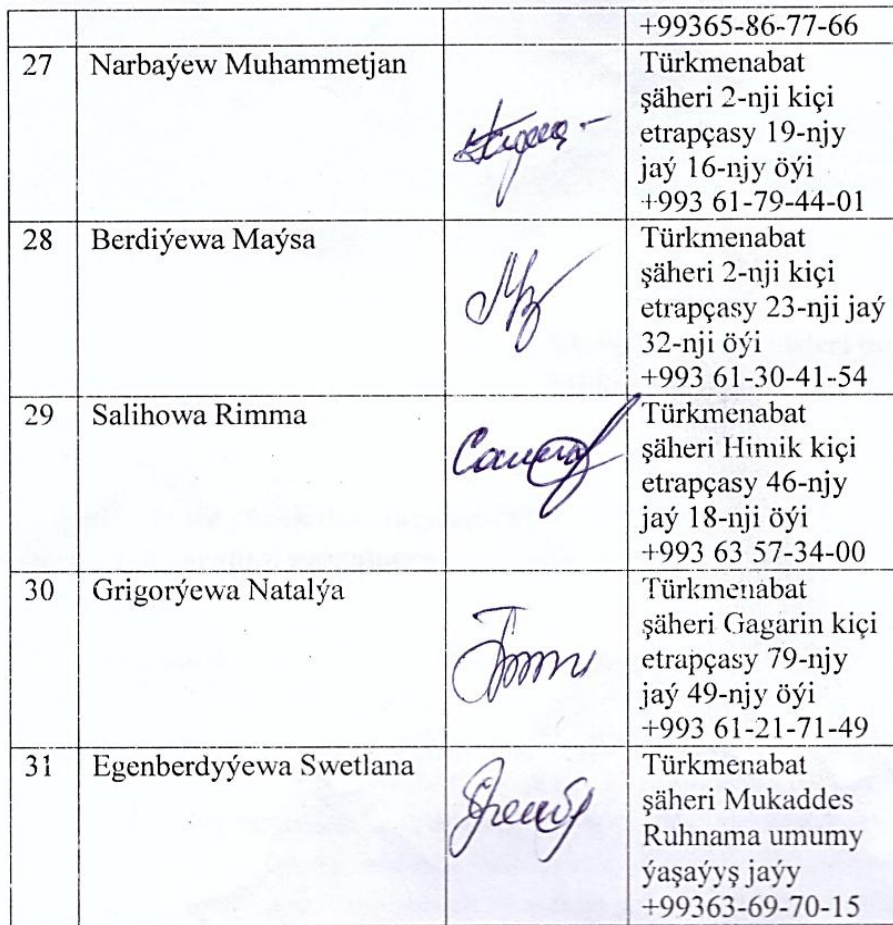 +99365-86-77-66
27 Narbaýew Muhammetjan Türkmenabat
şäheri 2-nji kiçi
etrapçasy 19-njy
jaý 16-njy öýi
+993 61-79-44-01
28 Berdiýewa Maýsa Türkmenabat
şäheri 2-nji kiçi
etrapçasy 23-nji jaý
32-nji öýi
+993 61-30-41-54
29 Salihowa Rimma Türkmenabat
şäheri Himik kiçi
etrapçasy 46-njy
jaý 18-nji öýi
+993 63 57-34-00
30 Grigorýewa Natalýa Türkmenabat
şäheri Gagarin kiçi
etrapçasy 79-njy
jaý 49-njy öýi
+993 61-21-71-49
31 Egenberdyýewa Swetlana Türkmenabat
şäheri Mukaddes
Ruhnama umumy
ýaşaýyş jaýy
+99363-69-70-15